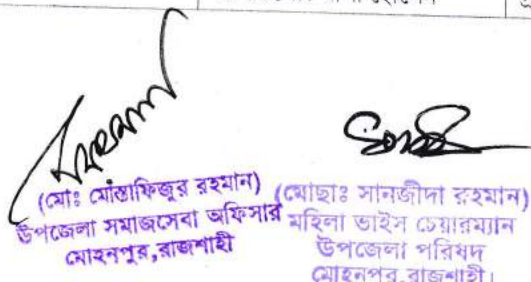 (মোঃ মোস্তাফিজুর রহমান)
উপজেলা সমাজসেবা অফিসার
মোহনপুর,রাজশাহী
(মোছাঃ সানজীদা রহমান)
মহিলা ভাইস চেয়ারম্যান
উপজেলা পরিষদ
মোহনপুর,রাজশাহী।